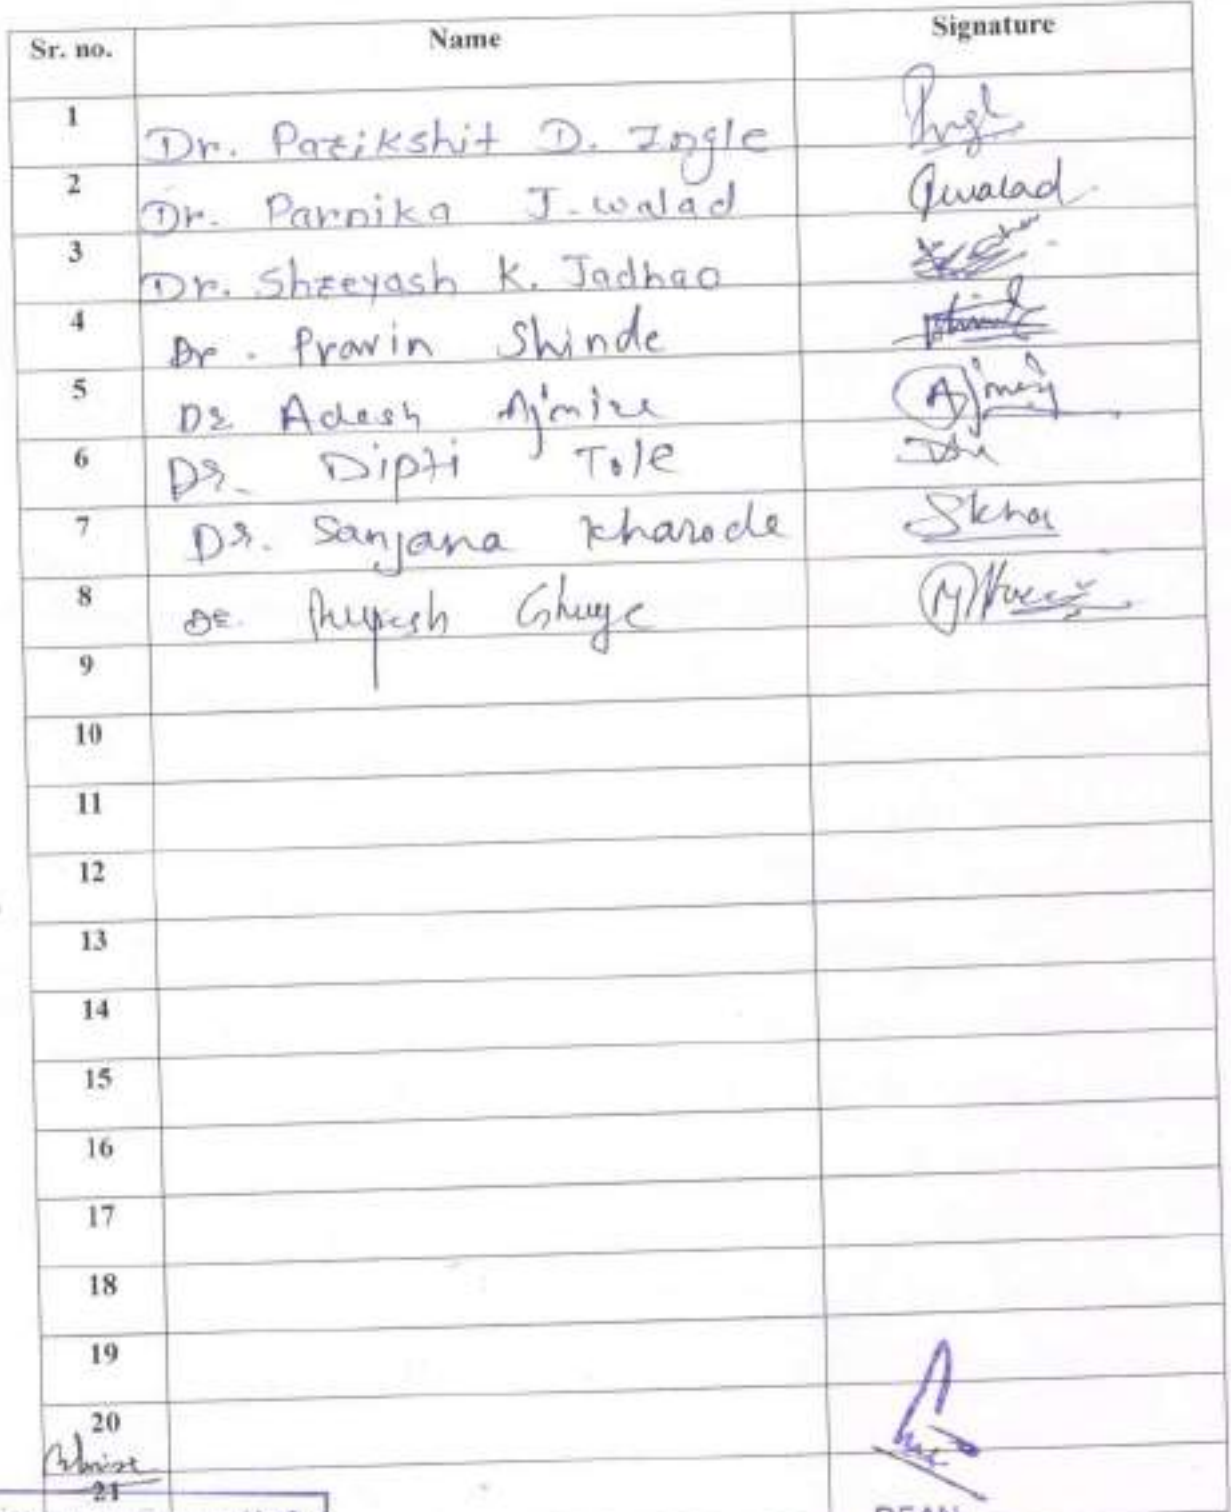 Sr. no. Name Signature
1 Dr. Parikshit D. Ingle
2 Dr. Parnika J. walad Jwalad
3 Dr. Shreeyash K. Jadhao
4 Dr. Pravin Shinde
5 Dr Adesh Ajmire
6 Dr. Dipti Tole
7 Dr. Sanjana Kharode Skhar
8 Dr. Ghuge
9
10
11
12
13
14
15
16
17
18
19
20
21
DEAN